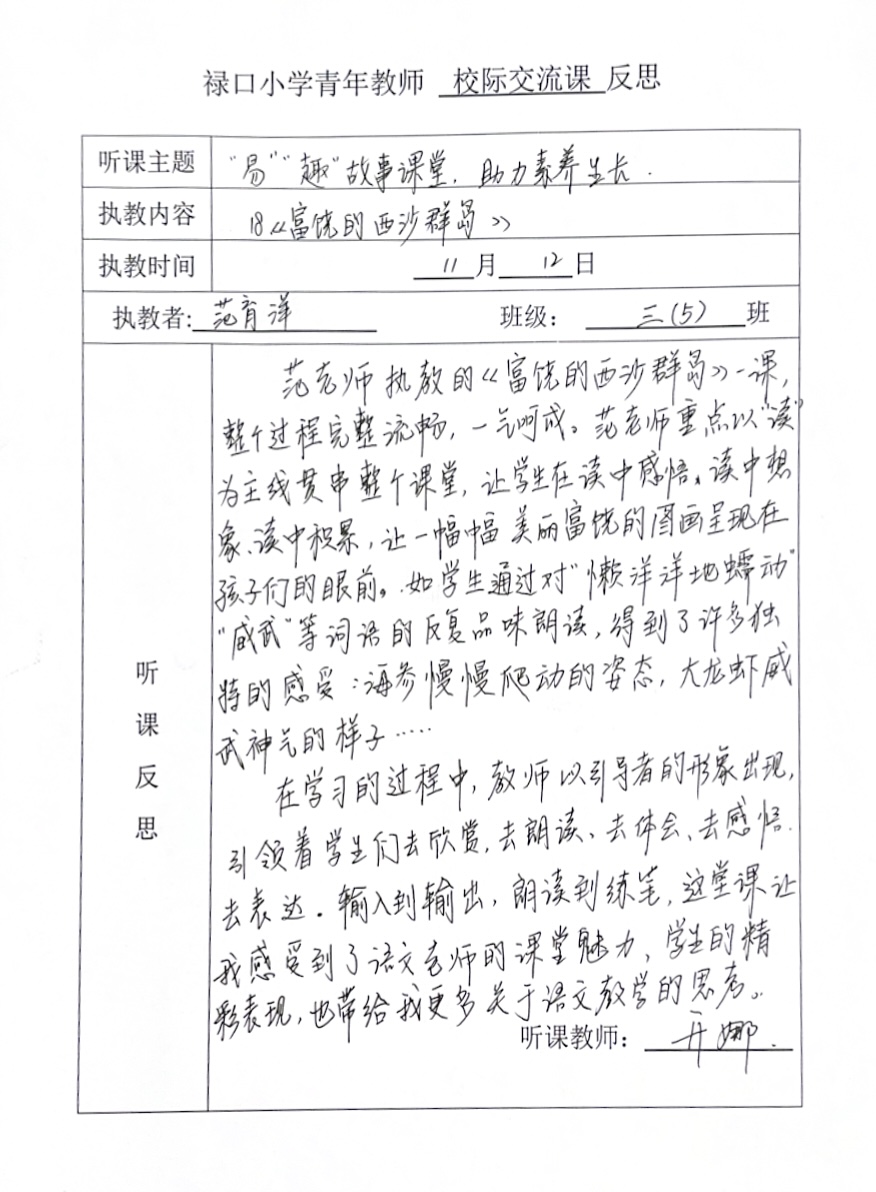 禄口小学青年教师 校际交流课 反思
听课主题 “易”“趣”故事课堂，助力素养生长．
执教内容 18《富饶的西沙群岛》
执教时间 11月12日
执教者：范育洋 班级：三(5)班
听课反思
范老师执教的《富饶的西沙群岛》一课，
整个过程完整流畅，一气呵成。范老师重点以“读”
为主线贯串整个课堂，让学生在读中感悟、读中想
象、读中积累，让一幅幅美丽富饶的图画呈现在
孩子们的眼前。如学生通过对“懒洋洋地蠕动”
“威武”等词语的反复品味朗读，得到了许多独
特的感受：海参慢慢爬动的姿态，大龙虾威
武神气的样子……
在学习的过程中，教师以引导者的形象出现，
引领着学生们去欣赏、去朗读、去体会、去感悟、
去表达。输入到输出，朗读到练笔，这堂课让
我感受到了语文老师的课堂魅力、学生的精
彩表现，也带给我更多关于语文教学的思考。
听课教师：娜．